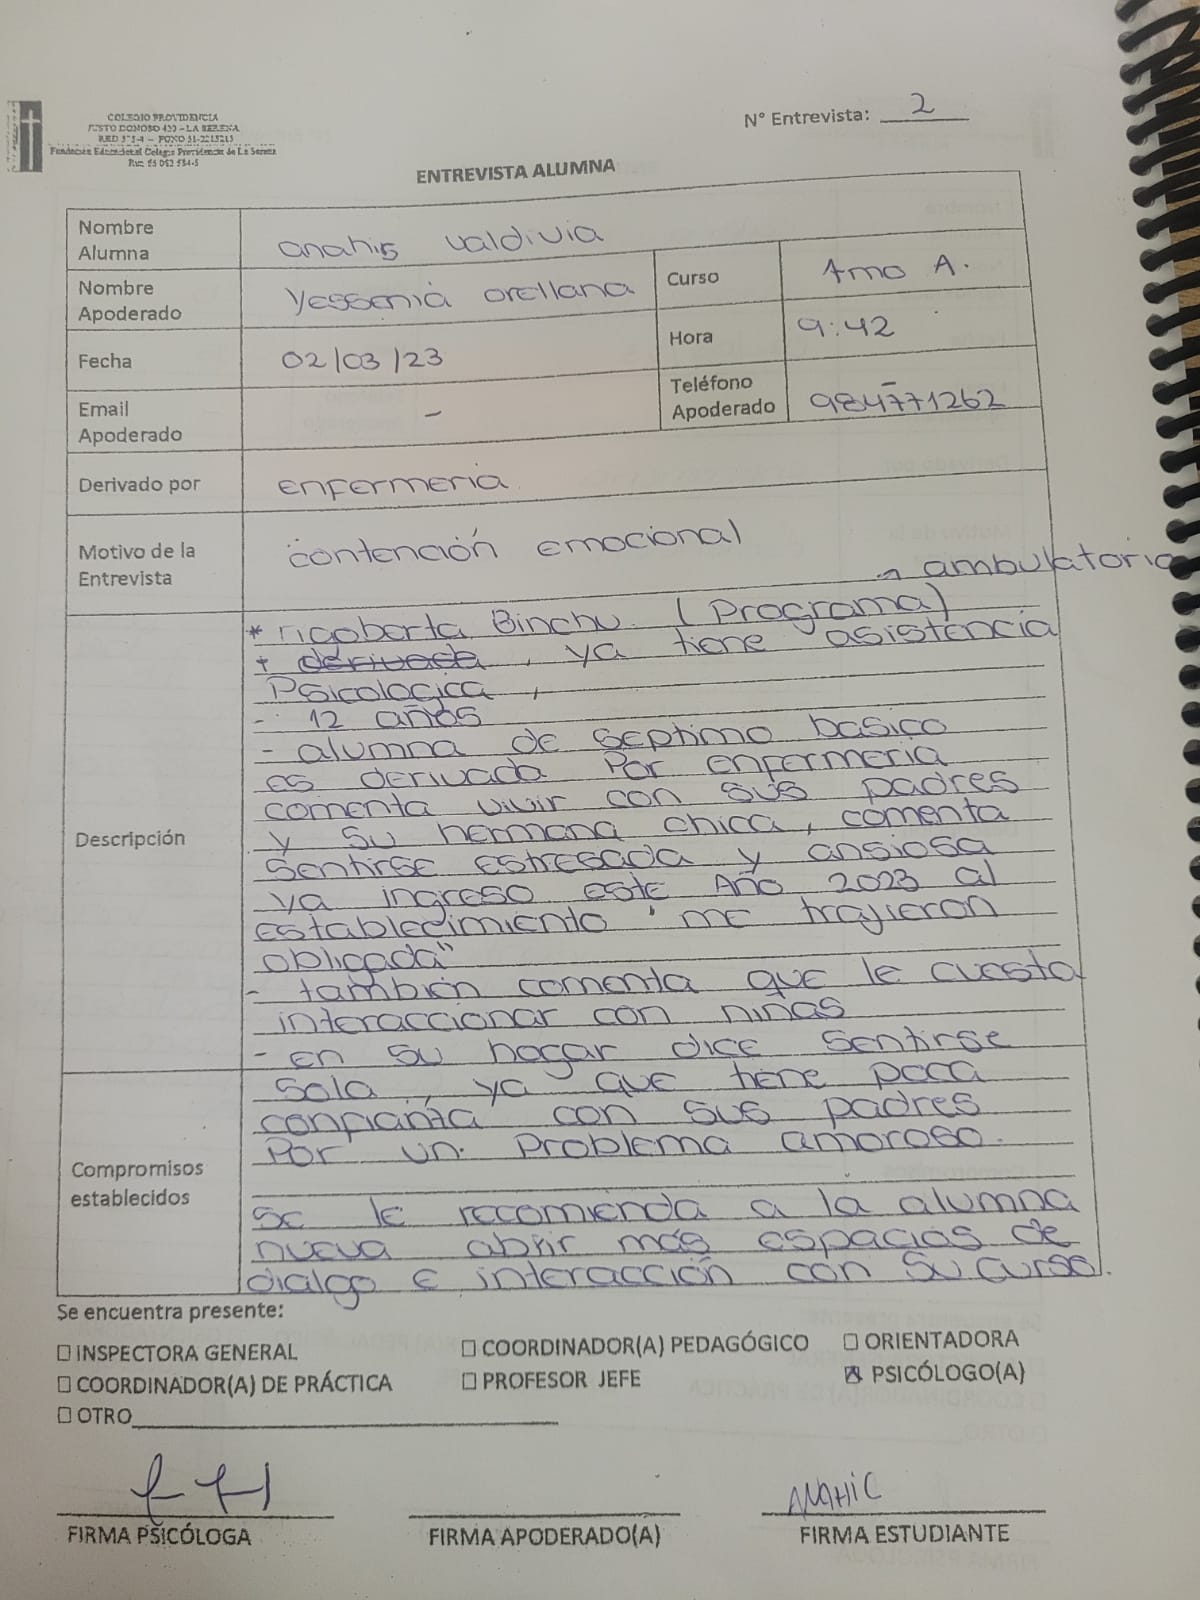 COLEGIO PROVIDENCIA
JUSTO DONOSO 420 - LA SERENA
RBD 575-4 - FONO 51-2215215
Fundación Educacional Colegio Providencia de La Serena
N° Entrevista: 2
ENTREVISTA ALUMNA
Nombre Alumna anahis valdivia
Nombre Apoderado Yessenia orellana Curso 7mo A.
Fecha 02/03/23 Hora 9:42
Email Apoderado - Teléfono Apoderado 984771262
Derivado por enfermeria
Motivo de la Entrevista contención emocional
ambulatorio
* rigoberta Binchu. (Programa)
+ derivada, ya tiene asistencia
Psicologica,
- 12 años
- alumna de septimo basico
es derivada Por enfermeria
comenta vivir con sus padres
y su hermana chica, comenta
Descripción
sentirse estresada y ansiosa
ya ingreso este Año 2023 al
establecimiento "me trajieron
obligada"
- también comenta que le cuesta
interaccionar con niñas
- en su hogar dice sentirse
sola, ya que tiene poca
confianza con sus padres
Por un problema amoroso.
Compromisos establecidos
se le recomienda a la alumna
nueva abrir más espacios de
dialgo e interacción con su curso.
Se encuentra presente:
☐ INSPECTORA GENERAL ☐ COORDINADOR(A) PEDAGÓGICO ☐ ORIENTADORA
☐ COORDINADOR(A) DE PRÁCTICA ☐ PROFESOR JEFE ☒ PSICÓLOGO(A)
☐ OTRO
FIRMA PSICÓLOGA FIRMA APODERADO(A) FIRMA ESTUDIANTE